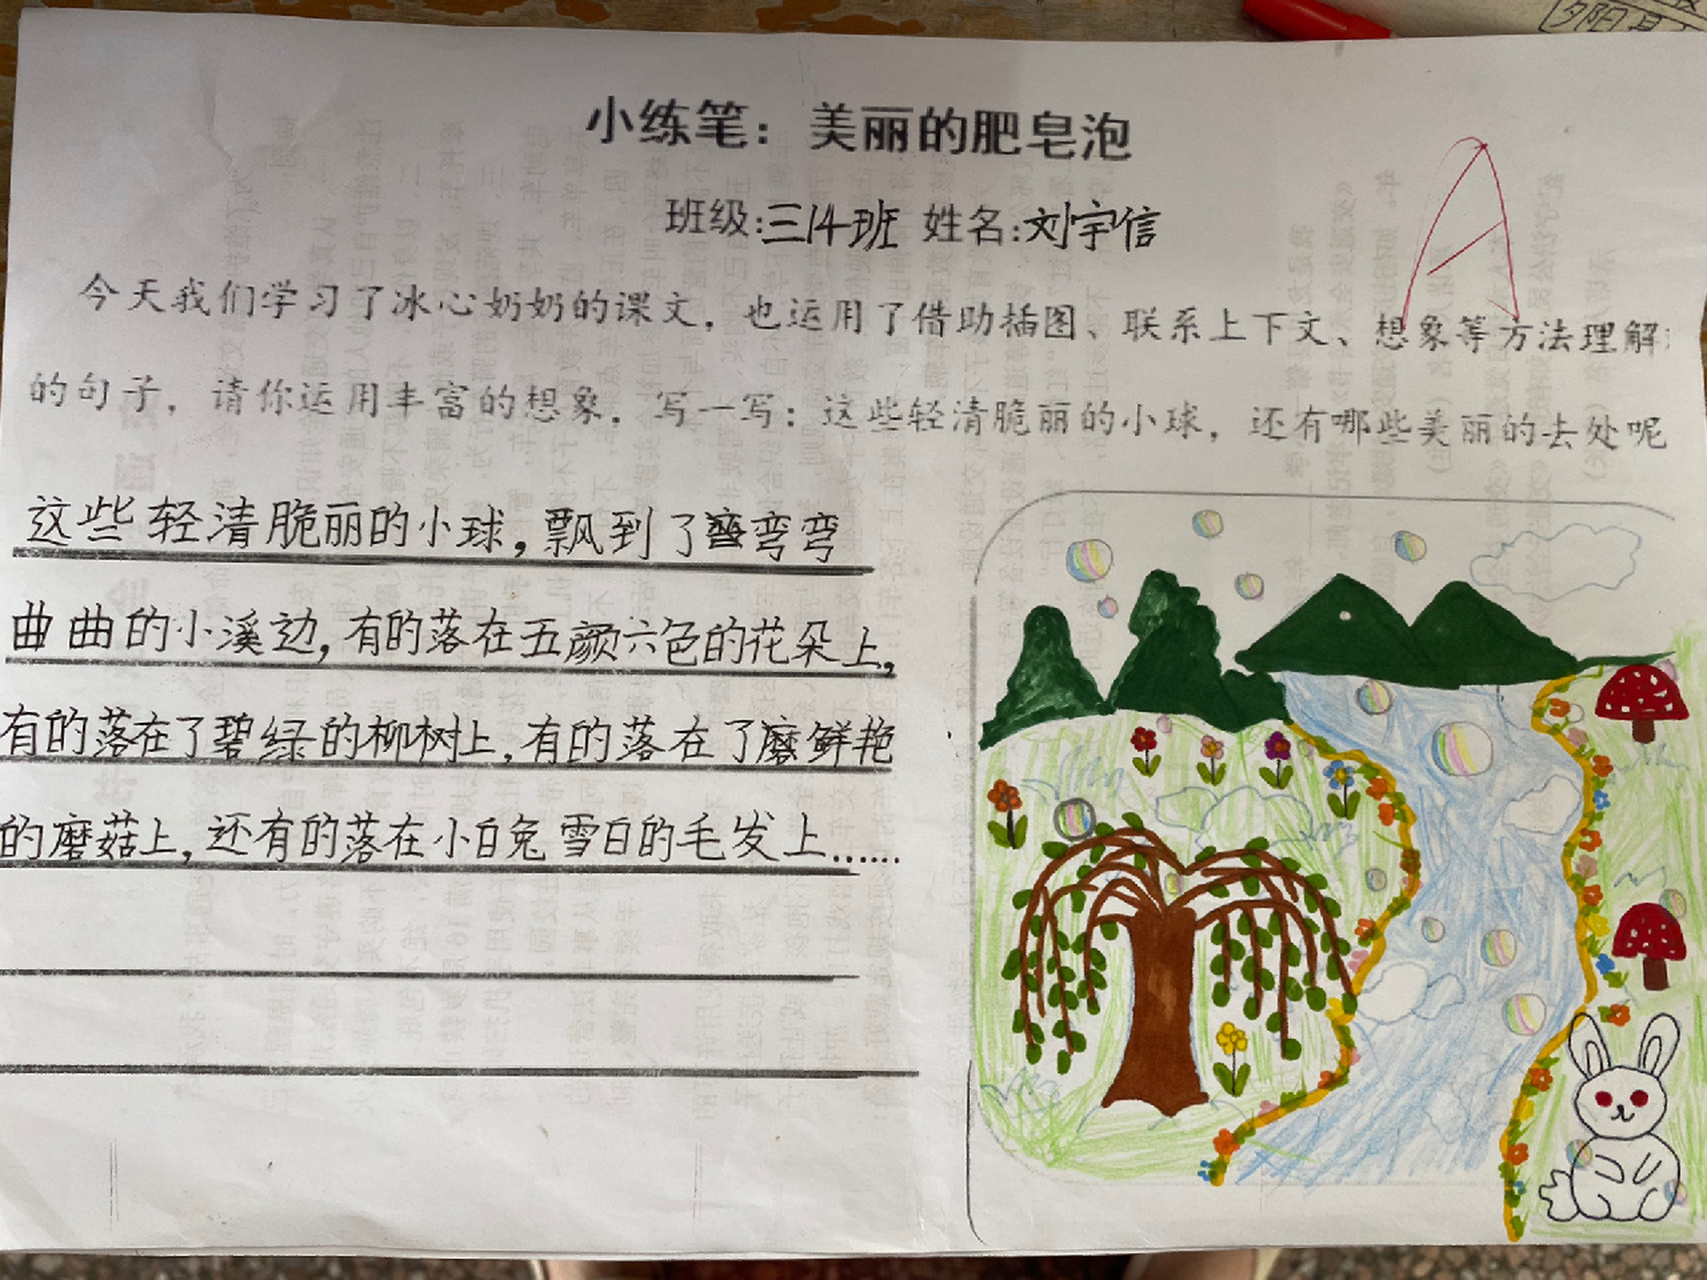 小练笔：美丽的肥皂泡
A
班级:三14班 姓名:刘宇信
今天我们学习了冰心奶奶的课文，也运用了借助插图、联系上下文、想象等方法理解
的句子，请你运用丰富的想象，写一写：这些轻清脆丽的小球，还有哪些美丽的去处呢
这些轻清脆丽的小球，飘到了弯弯
曲曲的小溪边，有的落在五颜六色的花朵上，
有的落在了碧绿的柳树上，有的落在了鲜艳
的磨菇上，还有的落在小白兔雪白的毛发上……
夕阳